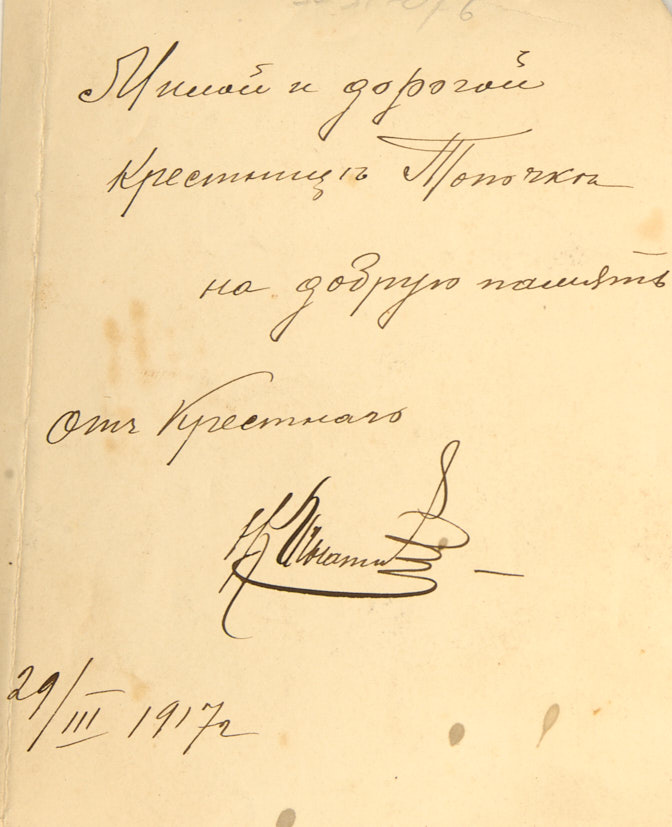 Милой и дорогой
Крестницѣ Топочкѣ
на добрую память
Отъ Крестнаго
29/III 1917 г